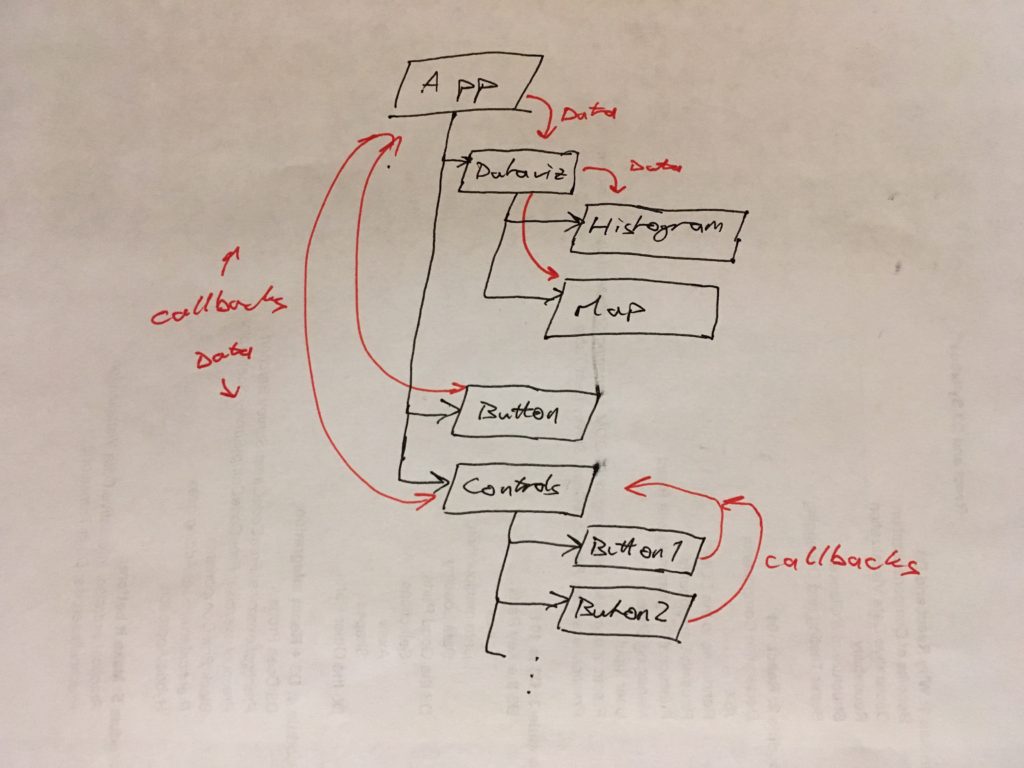 App
Data
Dataviz
Data
Histogram
Map
callbacks
Data
Button
Controls
Button1
Button2
callbacks